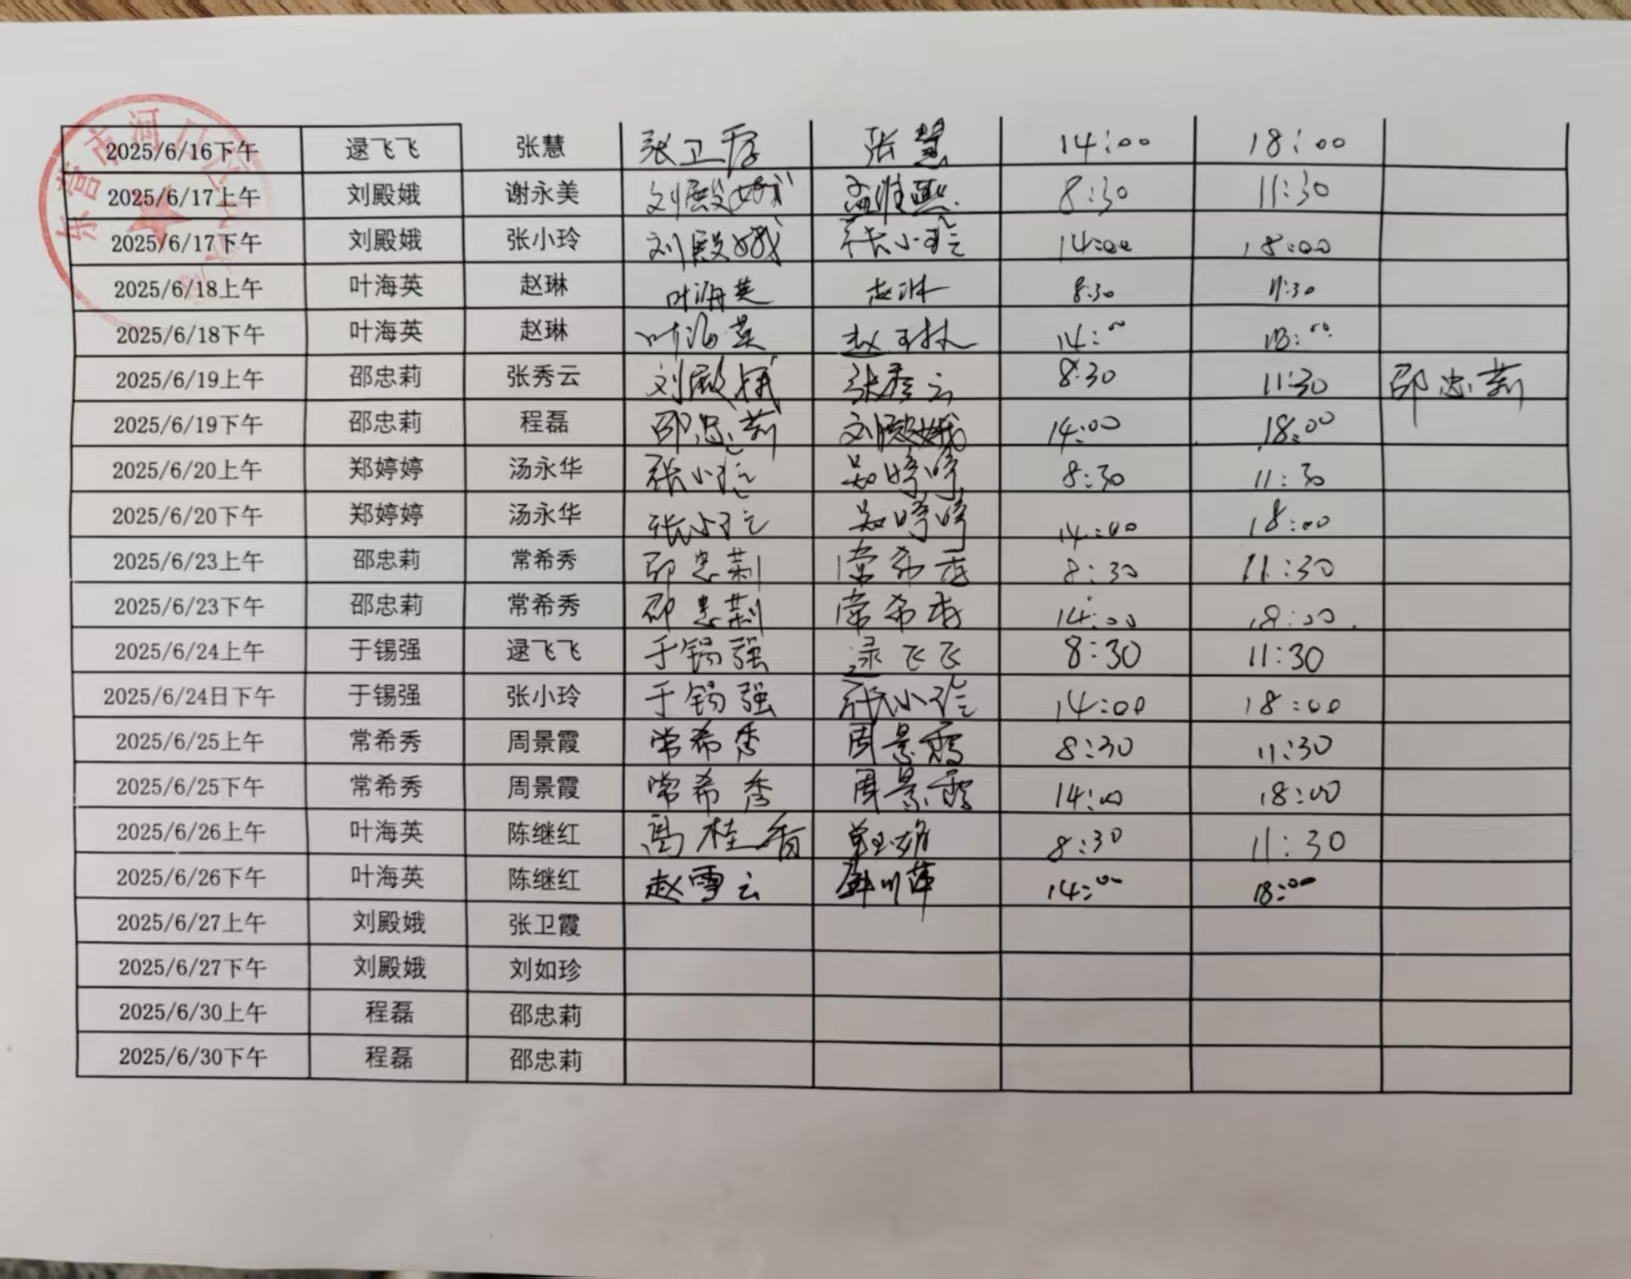 东营市河口区
2025/6/16下午 逯飞飞 张慧 张卫霞 张慧 14:00 18:00
2025/6/17上午 刘殿娥 谢永美 刘殿娥 8:30 11:30
2025/6/17下午 刘殿娥 张小玲 刘殿娥 张小玲 14:00 18:00
2025/6/18上午 叶海英 赵琳 叶海英 赵琳 8:30 11:30
2025/6/18下午 叶海英 赵琳 叶海英 赵琳 14:00 18:00
2025/6/19上午 邵忠莉 张秀云 刘殿娥 张秀云 8:30 11:30 邵忠莉
2025/6/19下午 邵忠莉 程磊 邵忠莉 刘殿娥 14:00 18:00
2025/6/20上午 郑婷婷 汤永华 张小玲 吴婷婷 8:30 11:30
2025/6/20下午 郑婷婷 汤永华 张小玲 吴婷婷 14:00 18:00
2025/6/23上午 邵忠莉 常希秀 邵忠莉 常希秀 8:30 11:30
2025/6/23下午 邵忠莉 常希秀 邵忠莉 常希秀 14:00 18:00.
2025/6/24上午 于锡强 逯飞飞 于锡强 逯飞飞 8:30 11:30
2025/6/24日下午 于锡强 张小玲 于锡强 张小玲 14:00 18:00
2025/6/25上午 常希秀 周景霞 常希秀 周景霞 8:30 11:30
2025/6/25下午 常希秀 周景霞 常希秀 周景霞 14:00 18:00
2025/6/26上午 叶海英 陈继红 高桂香 8:30 11:30
2025/6/26下午 叶海英 陈继红 赵雪云 14:00 18:00
2025/6/27上午 刘殿娥 张卫霞
2025/6/27下午 刘殿娥 刘如珍
2025/6/30上午 程磊 邵忠莉
2025/6/30下午 程磊 邵忠莉